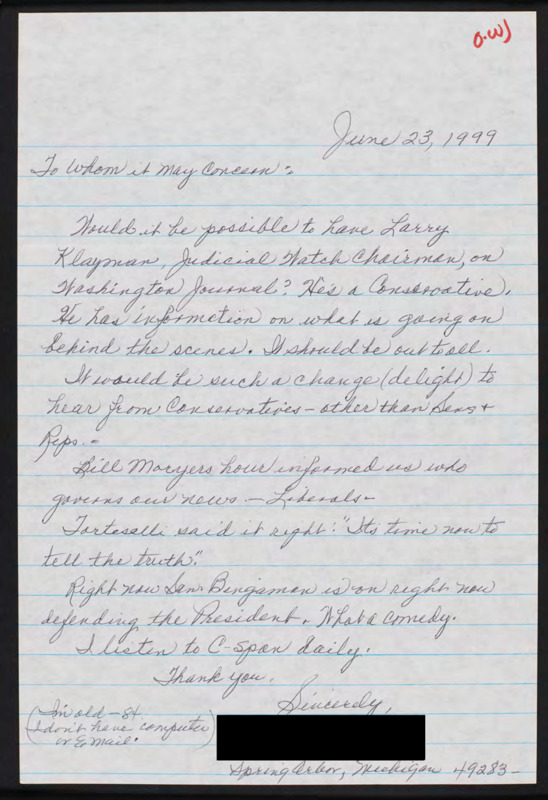 O.W)
June 23, 1999
To Whom it may Concern:
Would it be possible to have Larry
Klayman, Judicial Watch Chairman, on
Washington Journal? He's a Conservative.
He has information on what is going on
behind the scenes. It should be out to all.
It would be such a change (delight) to
hear from Conservatives - other than Sens +
Reps. -
Bill Moryers hour informed us who
governs our news - Liberals -
Tortoselli said it right: "Its time now to
tell the truth".
Right now Sen. Bingaman is on right now
defending the President. What a comedy.
I listen to C-Span daily.
Thank you.
Sincerely,
(I'm old - 84
I don't have computer
or E mail.)
Spring Arbor, Michigan 49283 -